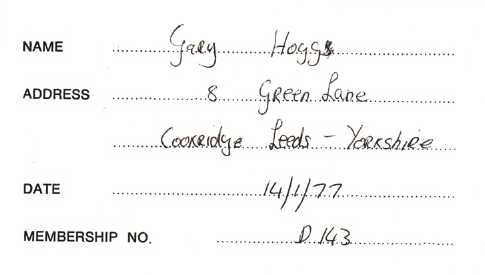 NAME Gary Hoggs
ADDRESS 8 Green Lane
Cookridge Leeds - Yorkshire
DATE 14/1/77
MEMBERSHIP NO. D 143